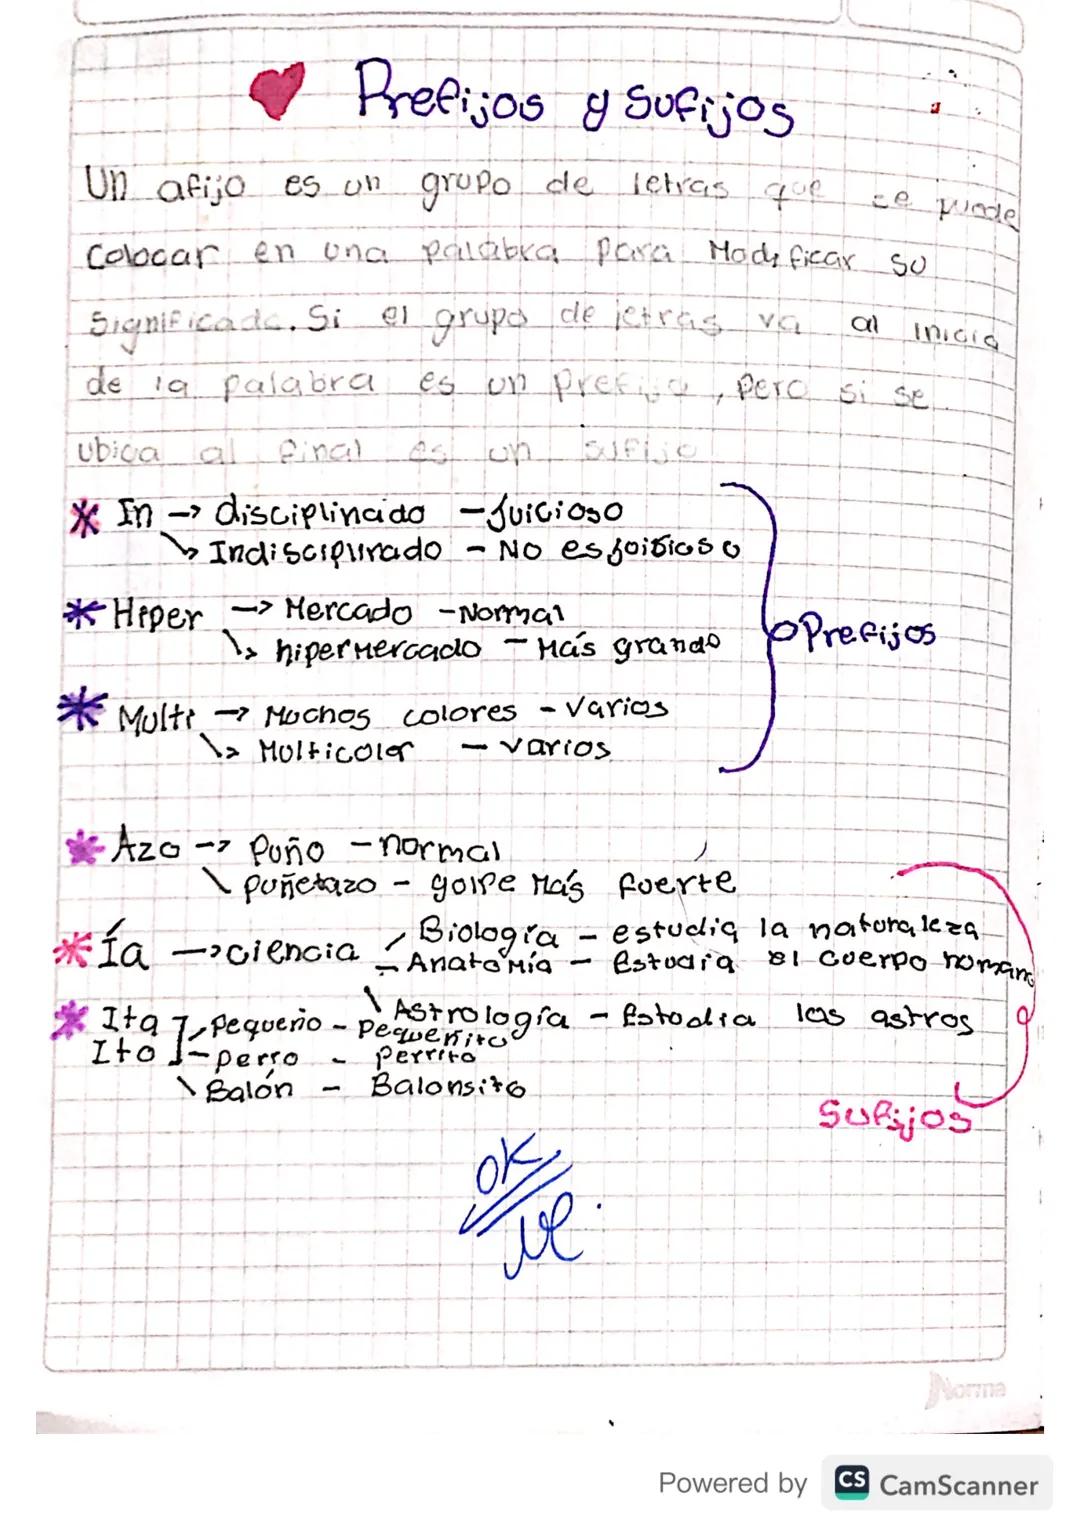 Prefijos y Sufijos
Un afijo es un grupo de letras que se puede
Colocar en una palabra para Modificar su
Significado. Si el grupo de letras va al inicio
de la palabra es un prefijo, pero si se
ubica al final es un sufijo
* In → disciplinado - Juicioso
↘ Indisciplinado - No es juisioso
* Hiper → Mercado - Normal
↘ hipermercado - Más grande
* Multi → Muchos colores - Varios
↘ Multicolor - varios
Prefijos
* Azo → Puño - normal
\ puñetazo - golpe Más fuerte
* Ía → ciencia / Biología - estudia la naturaleza
- Anatomía - Estudia el cuerpo humano
\ Astrología - Estudia los astros
* Ita ] pequeño - Pequeñito
Ito ] - perro - Perrito
\ Balón - Balonsito
Sufijos
OK
Norma
Powered by CS CamScanner